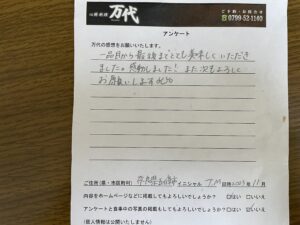 万代
ご予約・お問合せ
0799-52-1160
アンケート
万代の感想をお願いいたします。
一品目から最後までとても美味しくいただき
ました。感動しました! また次もよろしく
お願いします
ご住所(県・市区町村) 奈良県 イニシャル T.M 日時 2023年 11月
内容をホームページなどに掲載してもよろしいでしょうか? □はい □いいえ
アンケートと食事中の写真の掲載もしてもよろしいでしょうか? □はい □いいえ
(個人情報は公開いたしません)